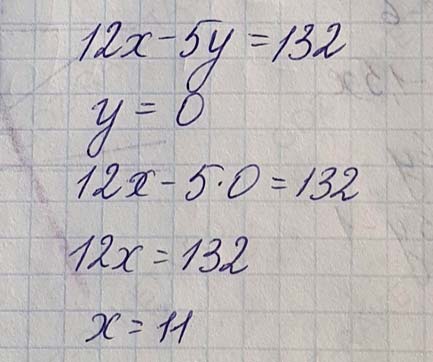 12x - 5y = 132
y = 0
12x - 5·0 = 132
12x = 132
x = 11